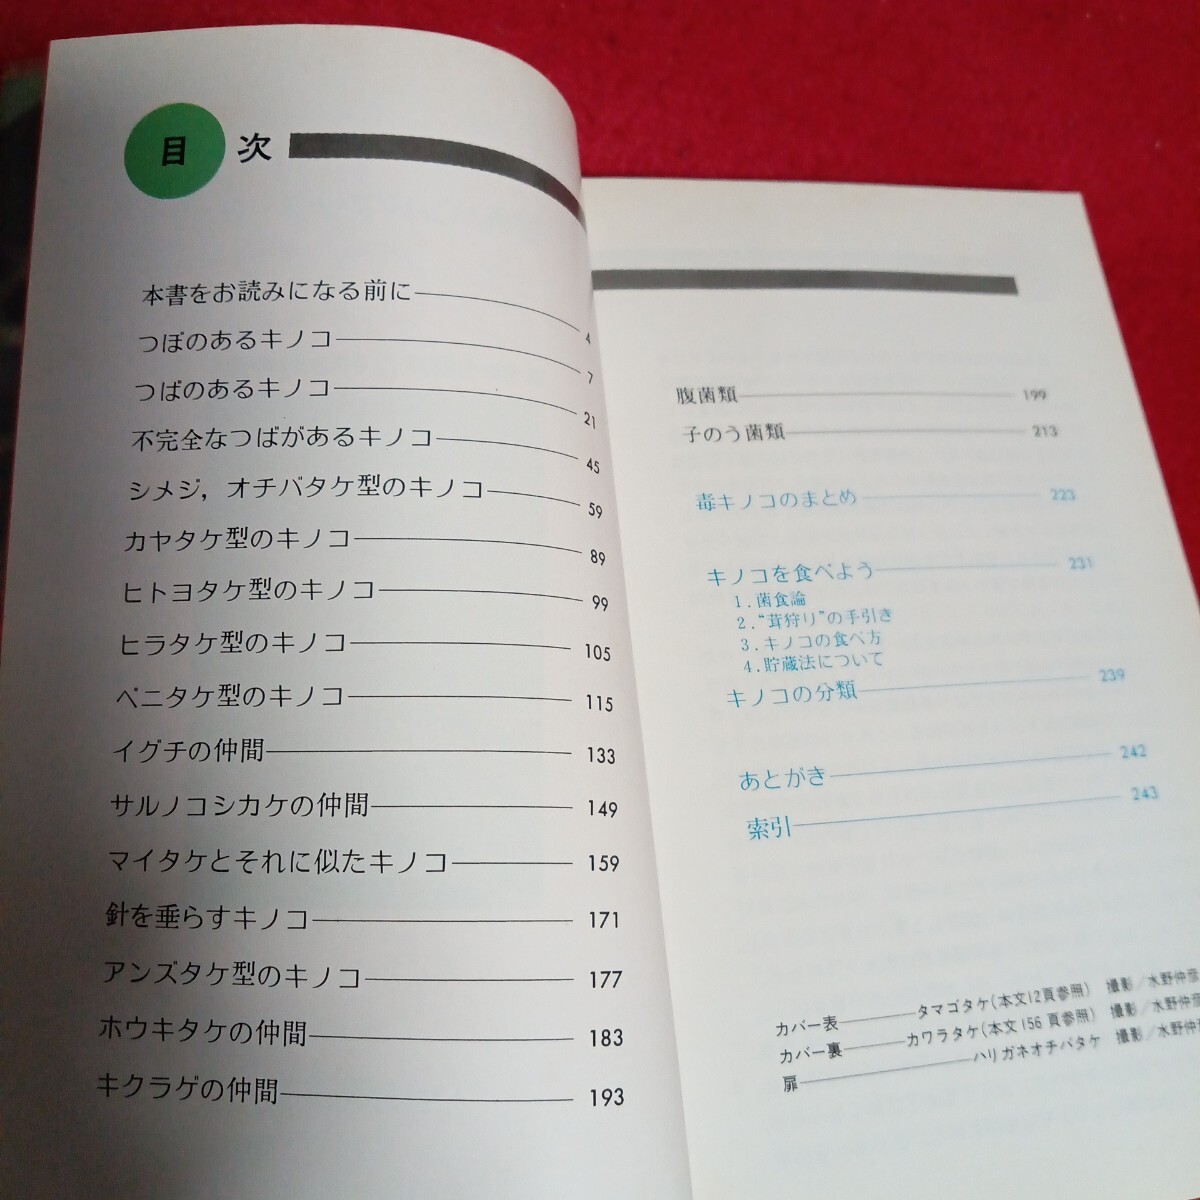 目次
本書をお読みになる前に 4
つぼのあるキノコ 7
つばのあるキノコ 21
不完全なつばがあるキノコ 45
シメジ，オチバタケ型のキノコ 59
カヤタケ型のキノコ 89
ヒトヨタケ型のキノコ 99
ヒラタケ型のキノコ 105
ベニタケ型のキノコ 115
イグチの仲間 133
サルノコシカケの仲間 149
マイタケとそれに似たキノコ 159
針を垂らすキノコ 171
アンズタケ型のキノコ 177
ホウキタケの仲間 183
キクラゲの仲間 193
腹菌類 199
子のう菌類 213
毒キノコのまとめ 223
キノコを食べよう 231
1．菌食論
2．“茸狩り”の手引き
3．キノコの食べ方
4．貯蔵法について
キノコの分類 239
あとがき 242
索引 243
カバー表 タマゴタケ(本文12頁参照) 撮影／水野仲彦
カバー裏 カワラタケ(本文156頁参照) 撮影／水野仲彦
扉 ハリガネオチバタケ 撮影／水野仲彦